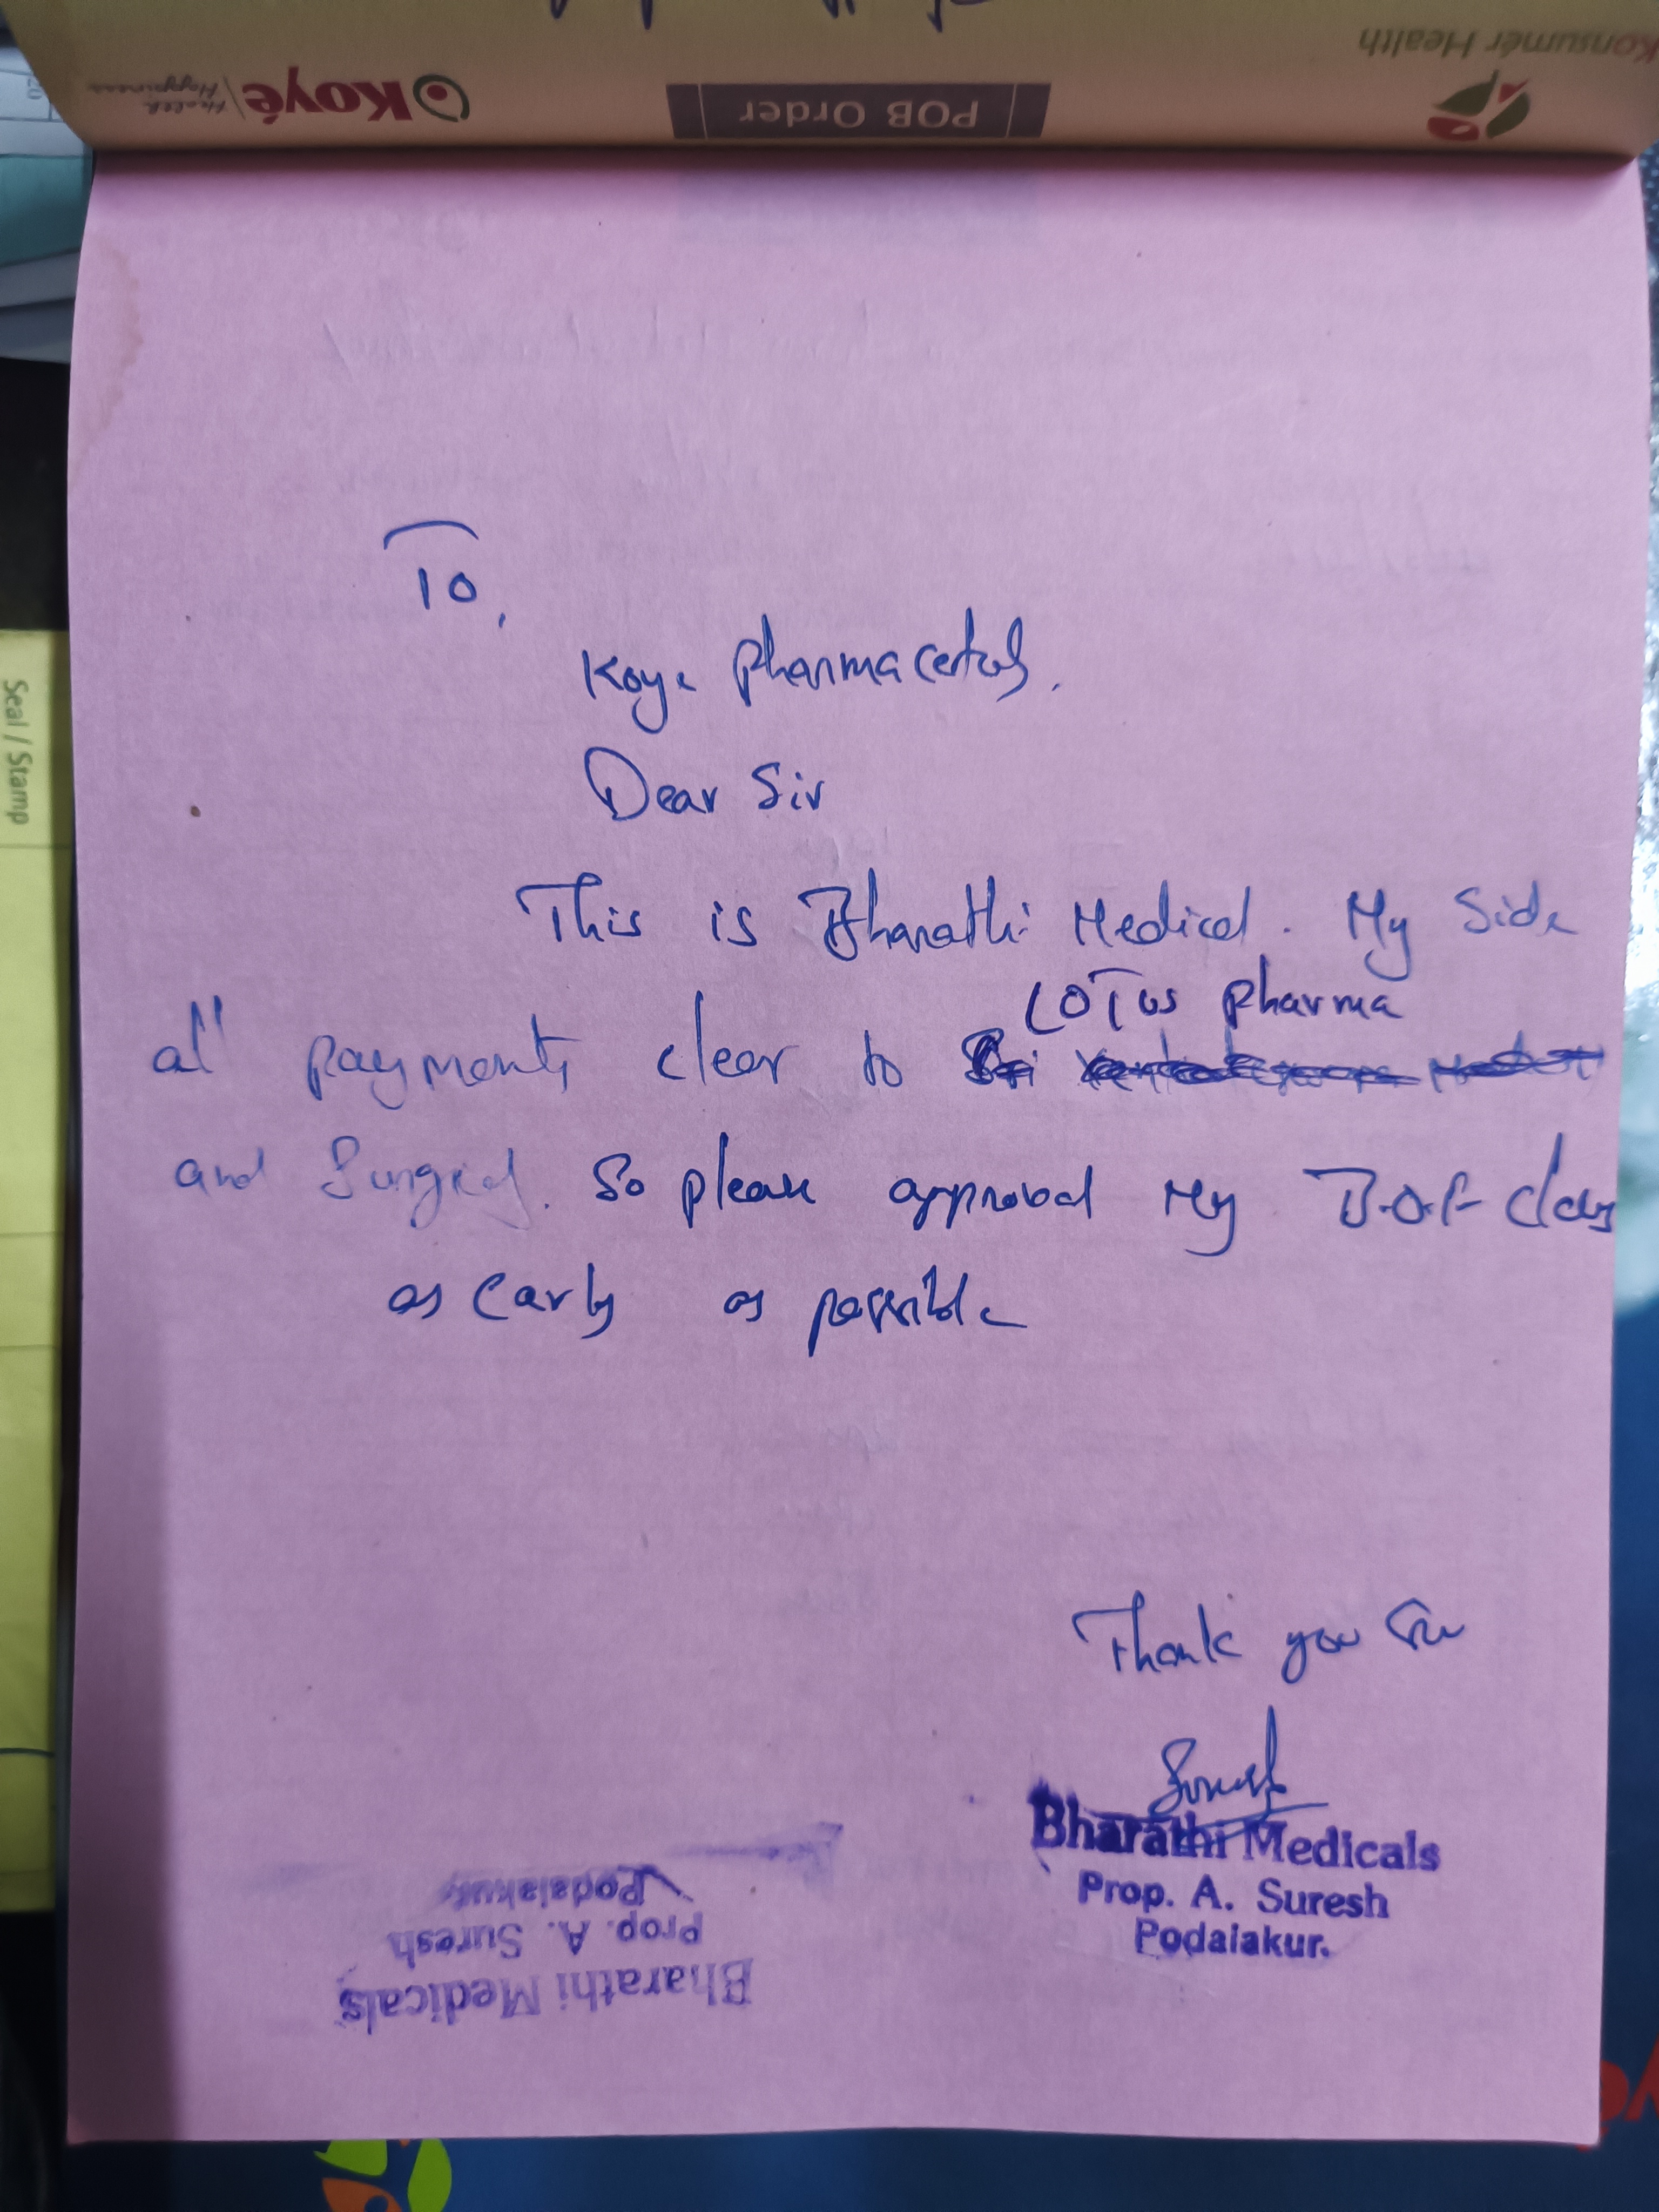 Konsumer Health
POB Order
Koyé
Health
Happiness
Seal / Stamp
To,
Koye Pharmacetcals.
Dear Sir
This is Bharathi Medical. My Side
LOTUS Pharma
all payments clear to Sri
and Surgical. So please approval My
as early as possible
Thank you Sir
Suresh
Bharathi Medicals
Prop. A. Suresh
Podalakur.
Bharathi Medicals
Prop. A. Suresh
Podalakur